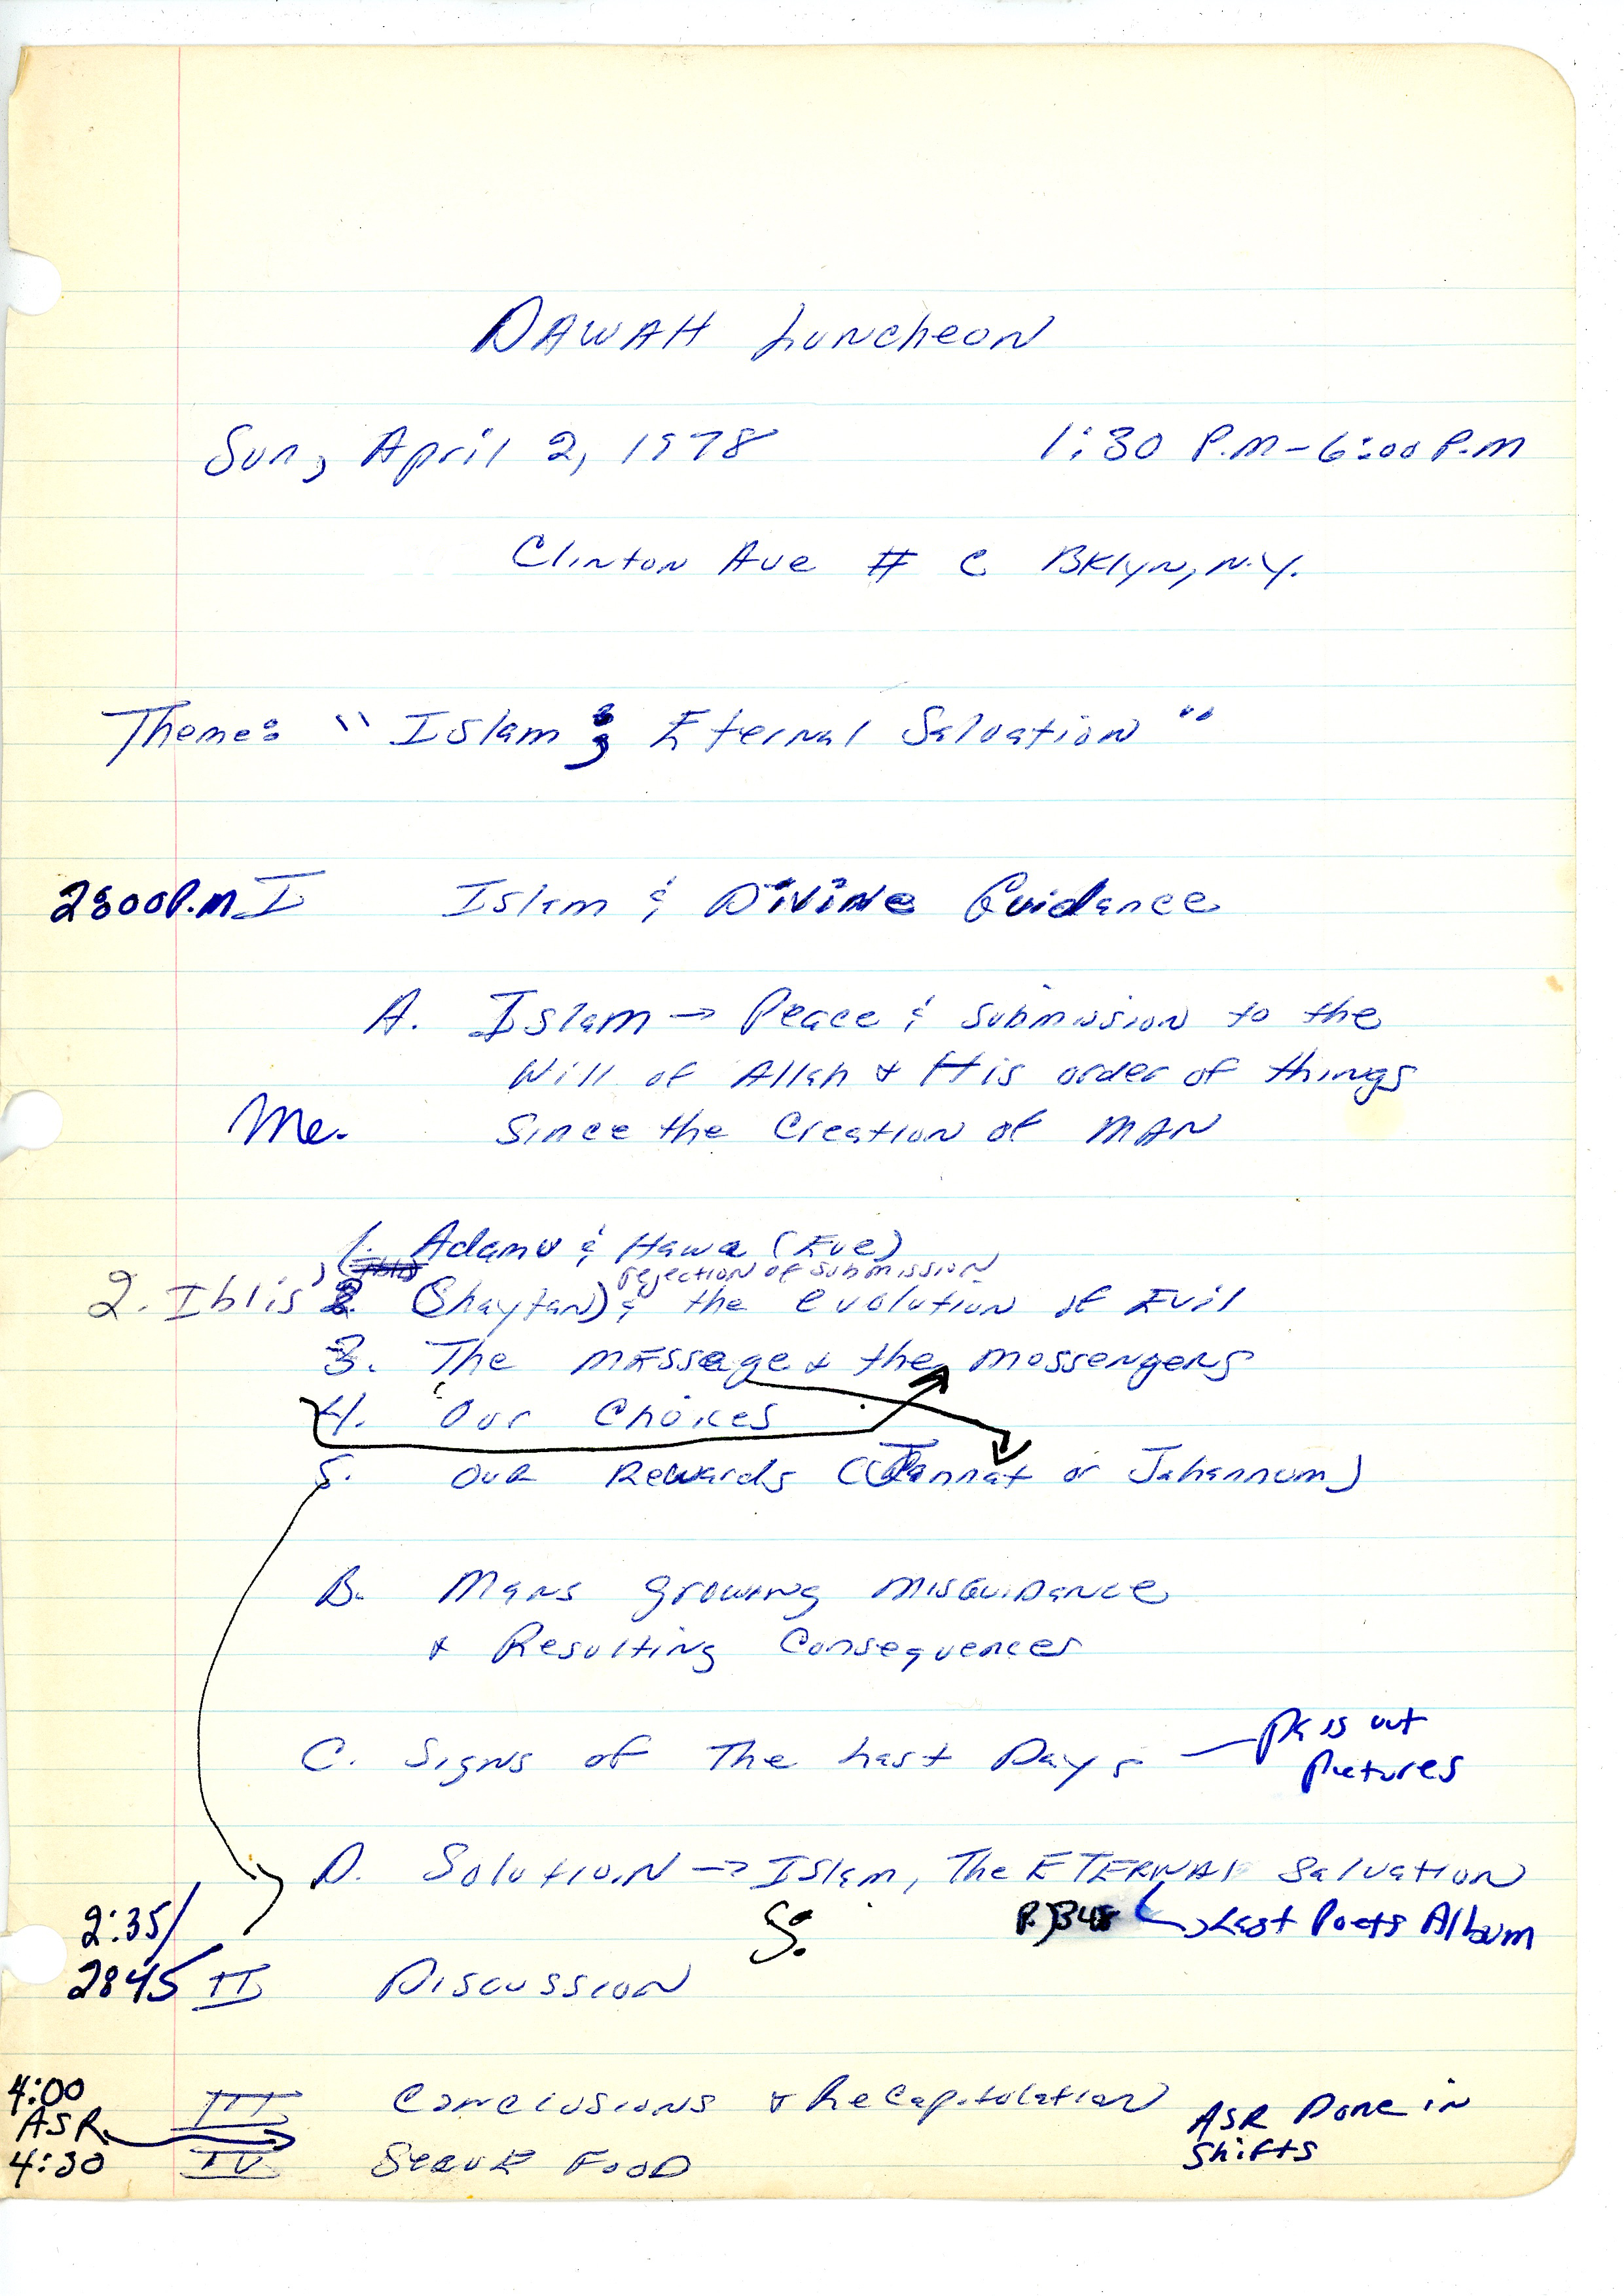 DAWAH Luncheon
Sun, April 2, 1978 1:30 P.M - 6:00 P.M
Clinton Ave # C BKlyn, N.Y.
Theme: "Islam: Eternal Salvation"
2:00 P.M I Islam & Divine Guidance
A. Islam → Peace & submission to the
Will of Allah & His order of things
Me. Since the Creation of MAN
1. Adam & Hawa (Eve)
rejection of submission
2. Iblis (Shaytan) & the evolution of Evil
3. The Message & the Messengers
4. Our Choices
5. Our Rewards (Jannat or Jahannum)
B. Mans growing misGuidance
& Resulting Consequences
C. Signs of The Last Days — Pass out
Pictures
D. Solution → Islam, The ETERNAL Salvation
2:35/ 5. Last Poets Album
2:45 II Discussion
4:00 III Conclusions & Recapitulation
ASR ASR Done in
Shifts
4:30 IV Serve Food